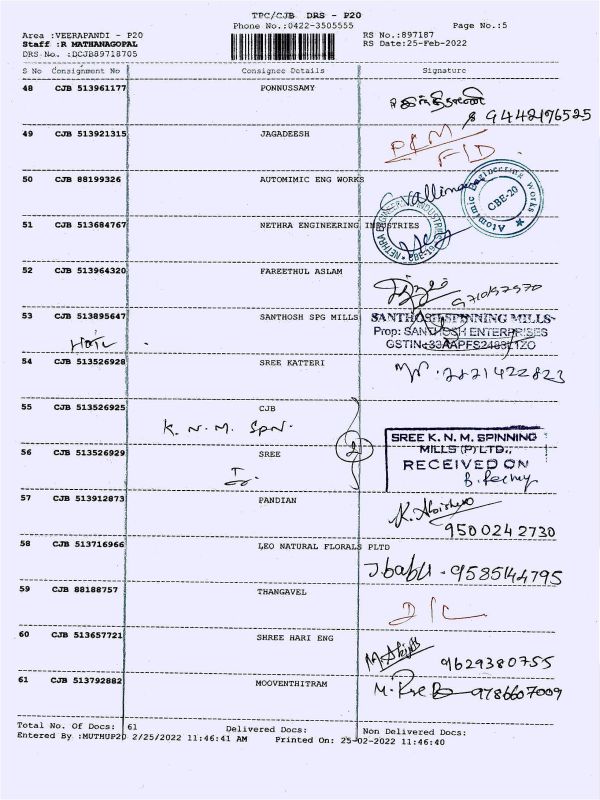 TPC/CJB DRS - P20
Phone No.:0422-3505555 Page No.:5
Area :VEERAPANDI - P20 RS No.:897187
Staff :R MATHANAGOPAL RS Date:25-Feb-2022
DRS No. :DCJB89718705
S No Consignment No Consignee Details Signature
48 CJB 513961177 PONNUSSAMY
9442176525
49 CJB 513921315 JAGADEESH
P&M
F/D
50 CJB 88199326 AUTOMIMIC ENG WORKS
Atomimic Engineering Works
CBE-20
51 CJB 513684767 NETHRA ENGINEERING INDUSTRIES
NETHRA ENGINEERING INDUSTRIES
52 CJB 513964320 FAREETHUL ASLAM
53 CJB 513895647 SANTHOSH SPG MILLS
SANTHOSH SPINNING MILLS
Prop: SANTHOSH ENTERPRISES
54 CJB 513526928 SREE KATTERI
55 CJB 513526925 CJB
K. N. M. Spn.
2
SREE K. N. M. SPINNING
MILLS (P) LTD.,
RECEIVED ON
56 CJB 513526929 SREE
57 CJB 513912873 PANDIAN
9500242730
58 CJB 513716966 LEO NATURAL FLORALS PLTD
Jbabu - 9585144795
59 CJB 88188757 THANGAVEL
D/L
60 CJB 513657721 SHREE HARI ENG
9629380755
61 CJB 513792882 MOOVENTHITRAM
9786607009
Total No. Of Docs: 61 Delivered Docs: Non Delivered Docs:
Entered By :MUTHUP20 2/25/2022 11:46:41 AM Printed On: 25-02-2022 11:46:40